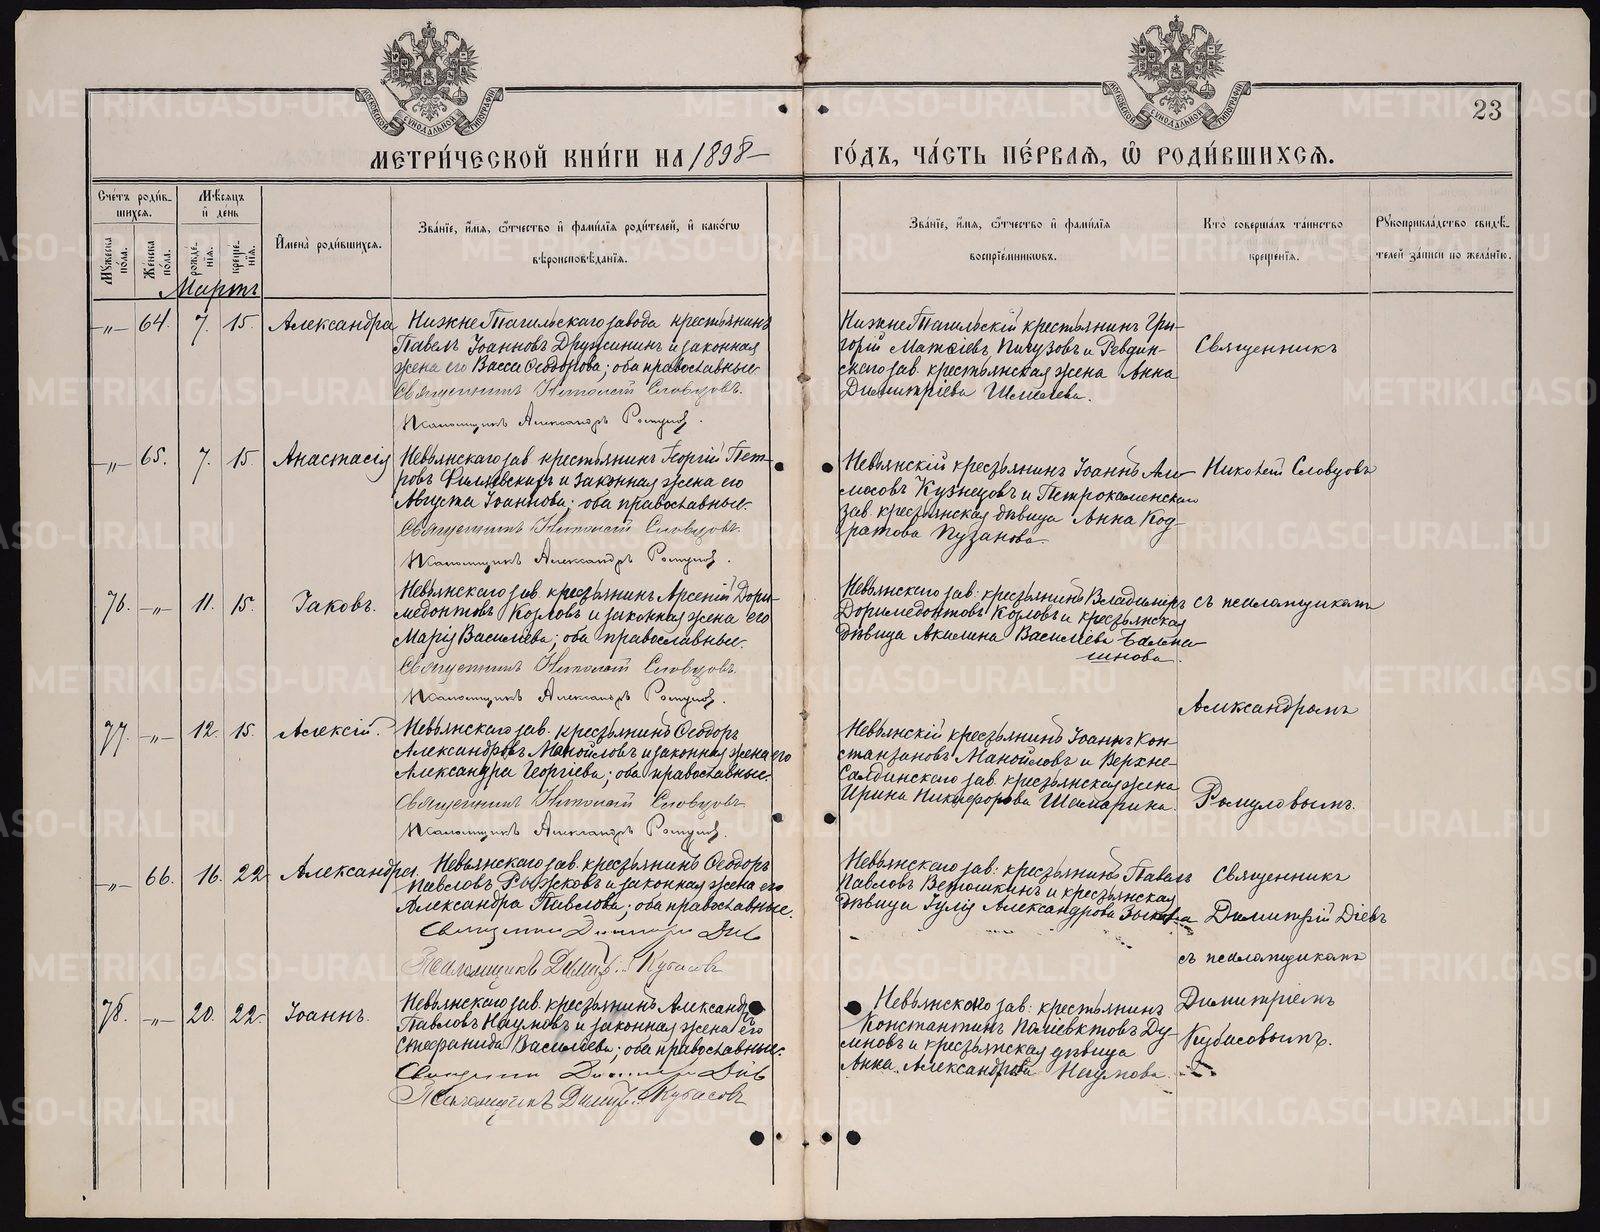 23
МЕТРИ́ЧЕСКОЙ КНИ́ГИ НА 1898
ГО́ДЪ, ЧА́СТЬ ПЕ́РВАЯ, Ѡ РОДИ́ВШИХСЯ.
Сче́тъ роди́в-
шихся.
Мужеска по́ла.
Же́нска по́ла.
Мѣ́сяцъ
и̂ де́нь
рожде́-нїя.
креще́-нїя.
Имена̀ роди́вшихся.
Зва́нїе, и́мя, ѻ́тчество и̂ фами́лїя роди́телей, и̂ како́гѡ
вѣроисповѣ́данїя.
Зва́нїе, и́мя, ѻ́тчество и̂ фами́лїя
воспрїе́мниковъ.
Кто̀ соверша́лъ та́инство
креще́нїя.
Рукоприкла́дство свидѣ́-
телей за́писи по жела́нїю.
Мартъ
-„- 64. 7. 15. Александра
НижнеТагильскаго завода крестьянинъ
Павелъ Іоанновъ Дружининъ и законная
жена его Васса Ѳеодорова; оба православные.
Священникъ Николай Словцовъ.
Псаломщикъ Александръ Ромулов.
НижнеТагильскій крестьянинъ Гри-
горій Матѳіевъ Пигузовъ и Ревдин-
скаго зав. крестьянская жена Анна
Димитріева
Священникъ
-„- 65. 7. 15. Анастасія
Невьянскаго зав. крестьянинъ Георгій Пет-
ровъ и законная жена его
Августа Іоаннова; оба православные.
Священникъ Николай Словцовъ.
Псаломщикъ Александръ Ромулов.
Невьянскій крестьянинъ Іоаннъ Ам-
мосовъ Кузнецовъ и Петрокаменскаго
зав. крестьянская дѣвица Анна Код-
ратова Пузанова.
Николай Словцовъ
76. -„- 11. 15. Іаковъ.
Невьянскаго зав. крестьянинъ Арсеній Дори-
медонтовъ Козловъ и законная жена его
Марія Василіева; оба православные.
Священникъ Николай Словцовъ.
Псаломщикъ Александръ Ромулов.
Невьянскаго зав. крестьянинъ Владиміръ
Доримедонтовъ Козловъ и крестьянская
дѣвица Акилина Василіева
съ псаломщикомъ
Александромъ
77. -„- 12. 15. Алексій.
Невьянскаго зав. крестьянинъ Ѳеодоръ
Александровъ Манойловъ и законная жена его
Александра Георгіева; оба православные.
Священникъ Николай Словцовъ
Псаломщикъ Александръ Ромулов.
Невьянскій крестьянинъ Іоаннъ Кон-
стантиновъ Манойловъ и Верхне-
Салдинскаго зав. крестьянская жена
Ирина Никифорова Шамарина.
Ромуловымъ.
-„- 66. 16. 22. Александра.
Невьянскаго зав. крестьянинъ Ѳеодоръ
Павловъ Рыжковъ и законная жена его
Александра Павлова; оба православные.
Священникъ Димитрій Діевъ
Псаломщикъ Димитр. Кубасовъ
Невьянскаго зав. крестьянинъ Павелъ
Павловъ Ветошкинъ и крестьянская
дѣвица Іулія Александрова
Священникъ
Димитрій Діевъ
съ псаломщикомъ
78. -„- 20. 22. Іоаннъ.
Невьянскаго зав. крестьянинъ Александръ
Павловъ Наумовъ и законная жена его
Стефанида Василіева; оба православные.
Священникъ Димитрій Діевъ
Псаломщикъ Димитр. Кубасовъ
Невьянскаго зав. крестьянинъ
Константинъ Поліевктовъ Ду-
мновъ и крестьянская дѣвица
Анна Александрова Наумова.
Димитріемъ
Кубасовымъ.
METRIKI.GASO-URAL.RU